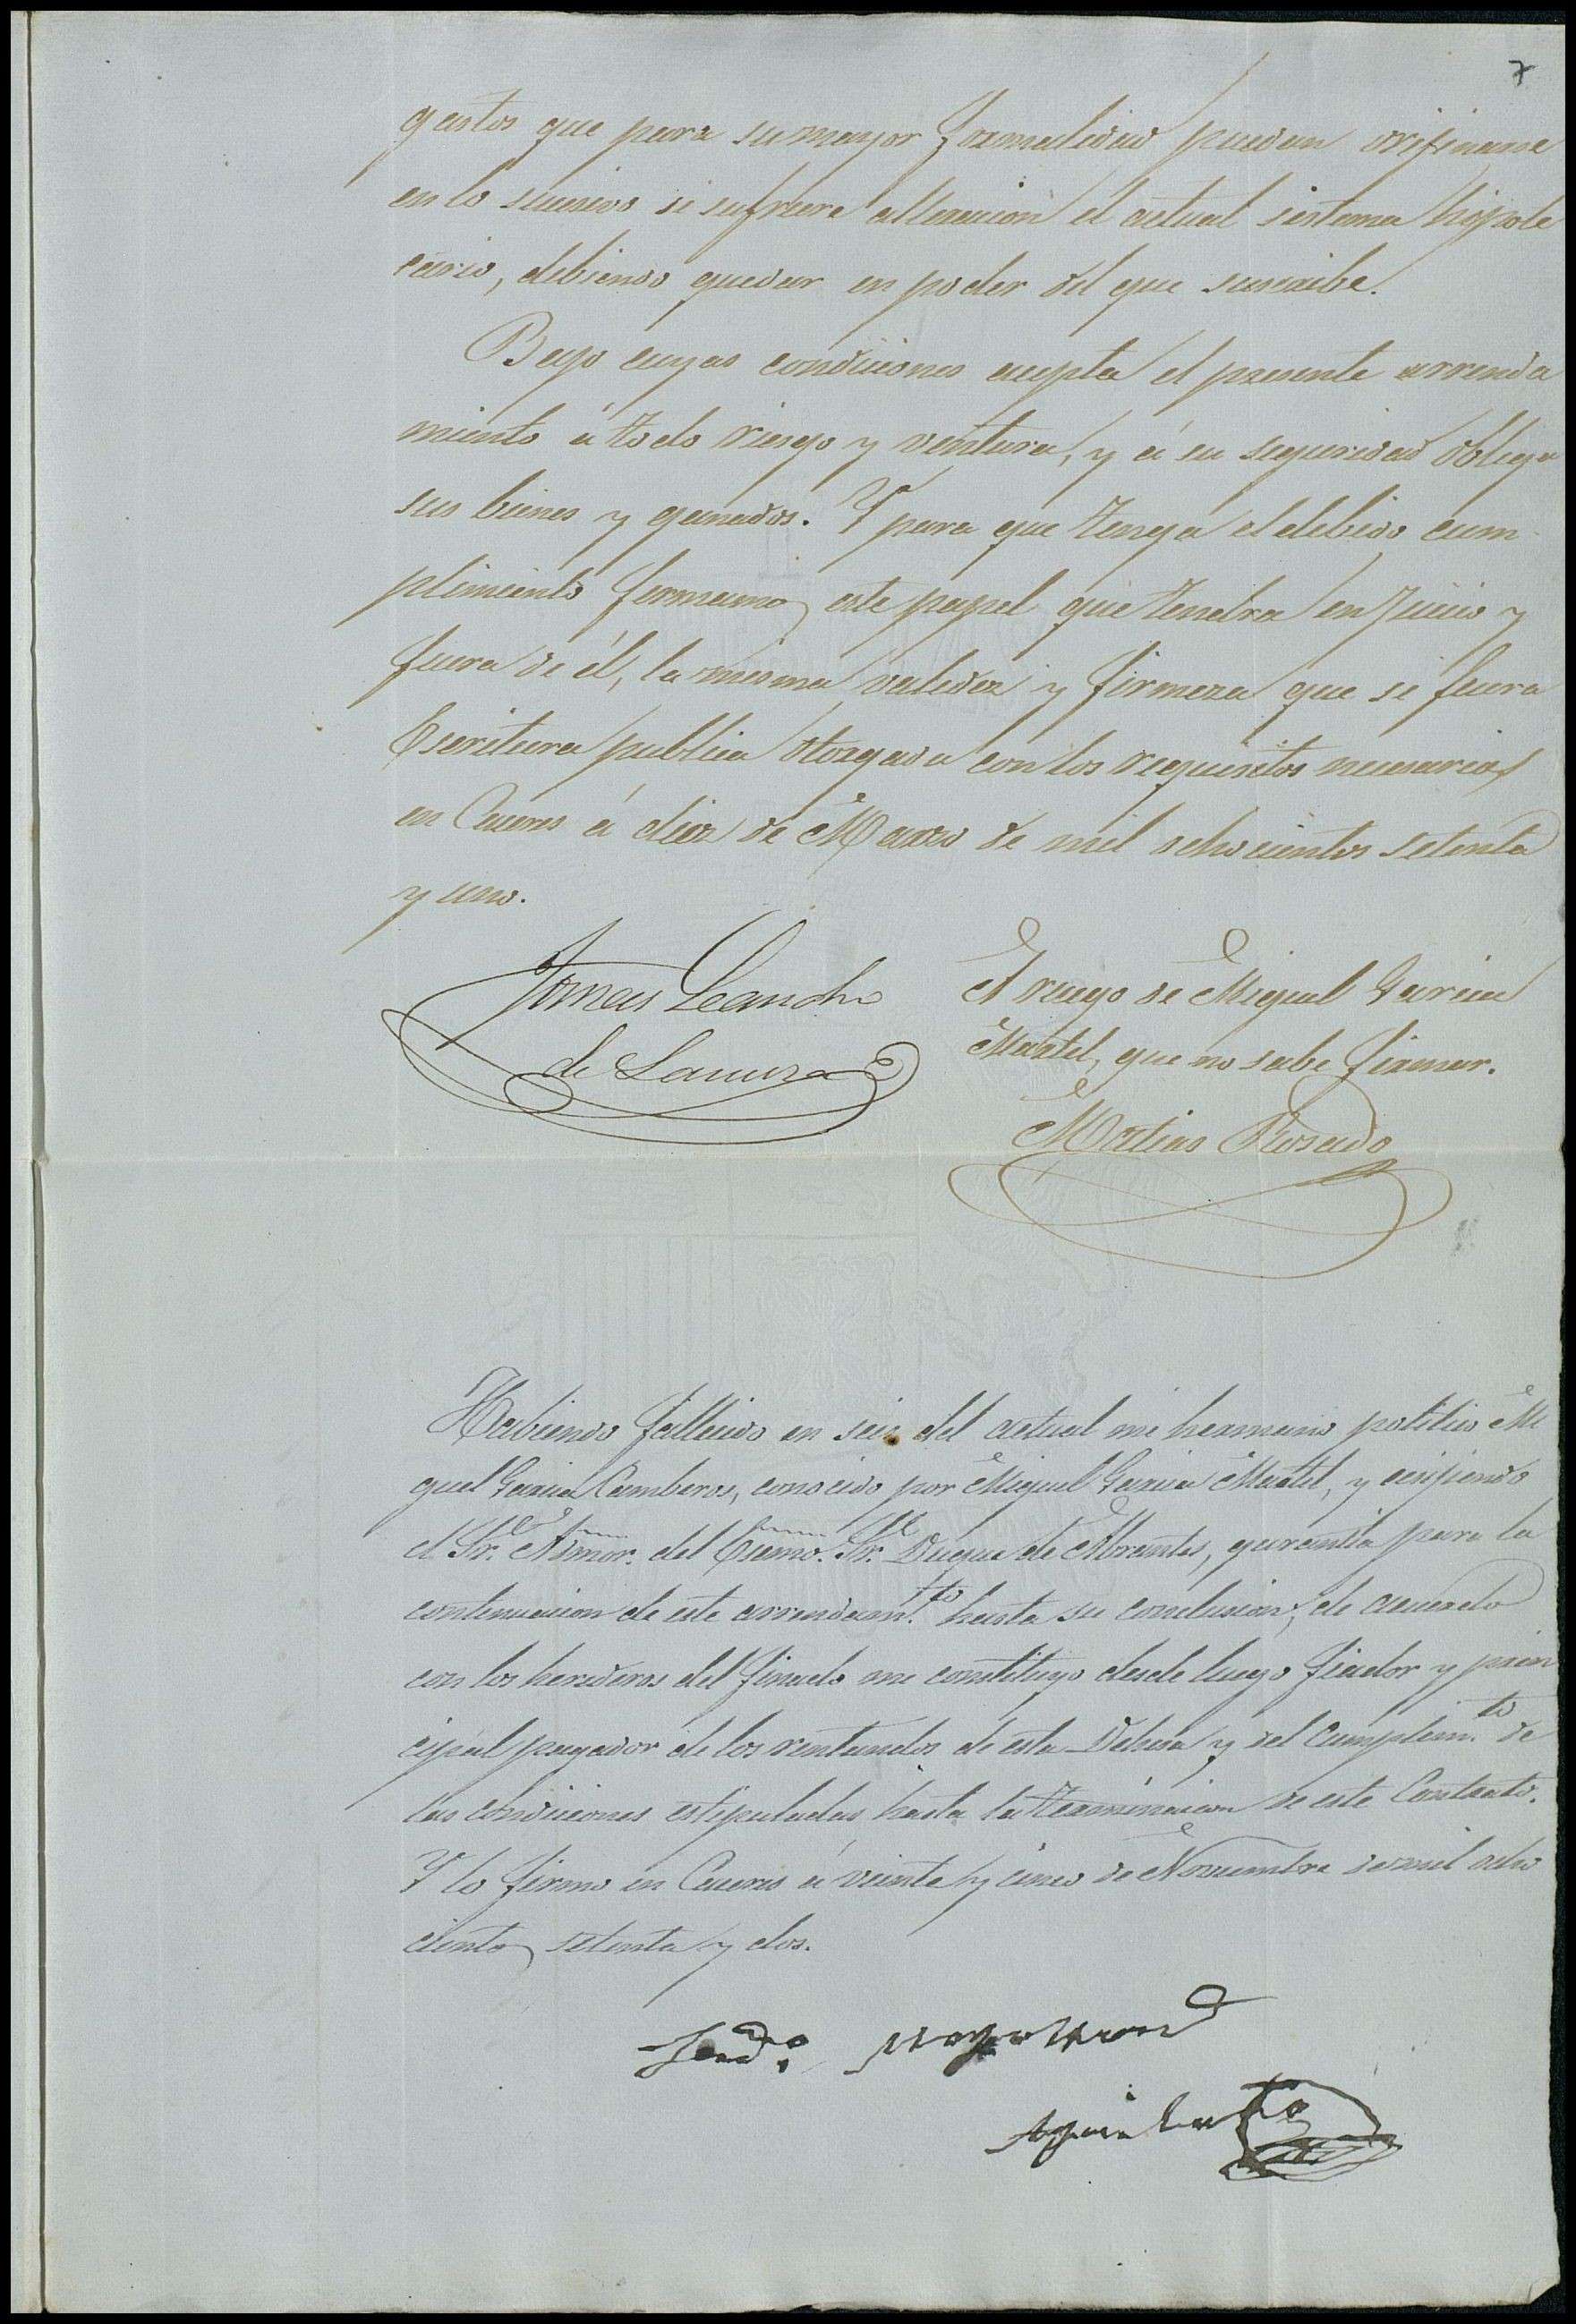 7
gastos que para su mayor formalidad puedan originarse
en lo sucesivo si sufriere alteracion el actual sistema hipote
cario, debiendo quedar en poder del que suscribe.
Bajo cuyas condiciones acepta el presente arrenda
miento á todo riesgo y ventura, y á su seguridad obliga
sus bienes y ganados. Y para que tenga el debido cum
plimiento firmamos este papel que tendra en juicio y
fuera de él, la misma validez y firmeza que si fuera
Escritura publica otorgada con los requisitos necesarios
en Caceres á diez de Marzo de mil ochocientos setenta
y uno.
Tomas Leandro
de Lanuza
A ruego de Miguel Garcia
Martel, que no sabe firmar.
Matias Rosado
Habiendo fallecido en seis del actual mi hermano politico Mi
guel Garcia Camberos, conocido por Miguel Garcia Martel, y exijiendo
el Sr. Admor. del Escmo. Sr. Duque de Abrantes, garantia para la
continuacion de este arrendam.to hasta su conclusion, de acuerdo
con los herederos del finado me constituyo desde luego fiador y prin
cipal pagador de los rentandos de esta Dehesa y del cumplim.to de
las condiciones estipuladas hasta la terminacion de este Contrato.
Y lo firmo en Caceres á veinte y cinco de Noviembre de mil ocho
cientos setenta y dos.